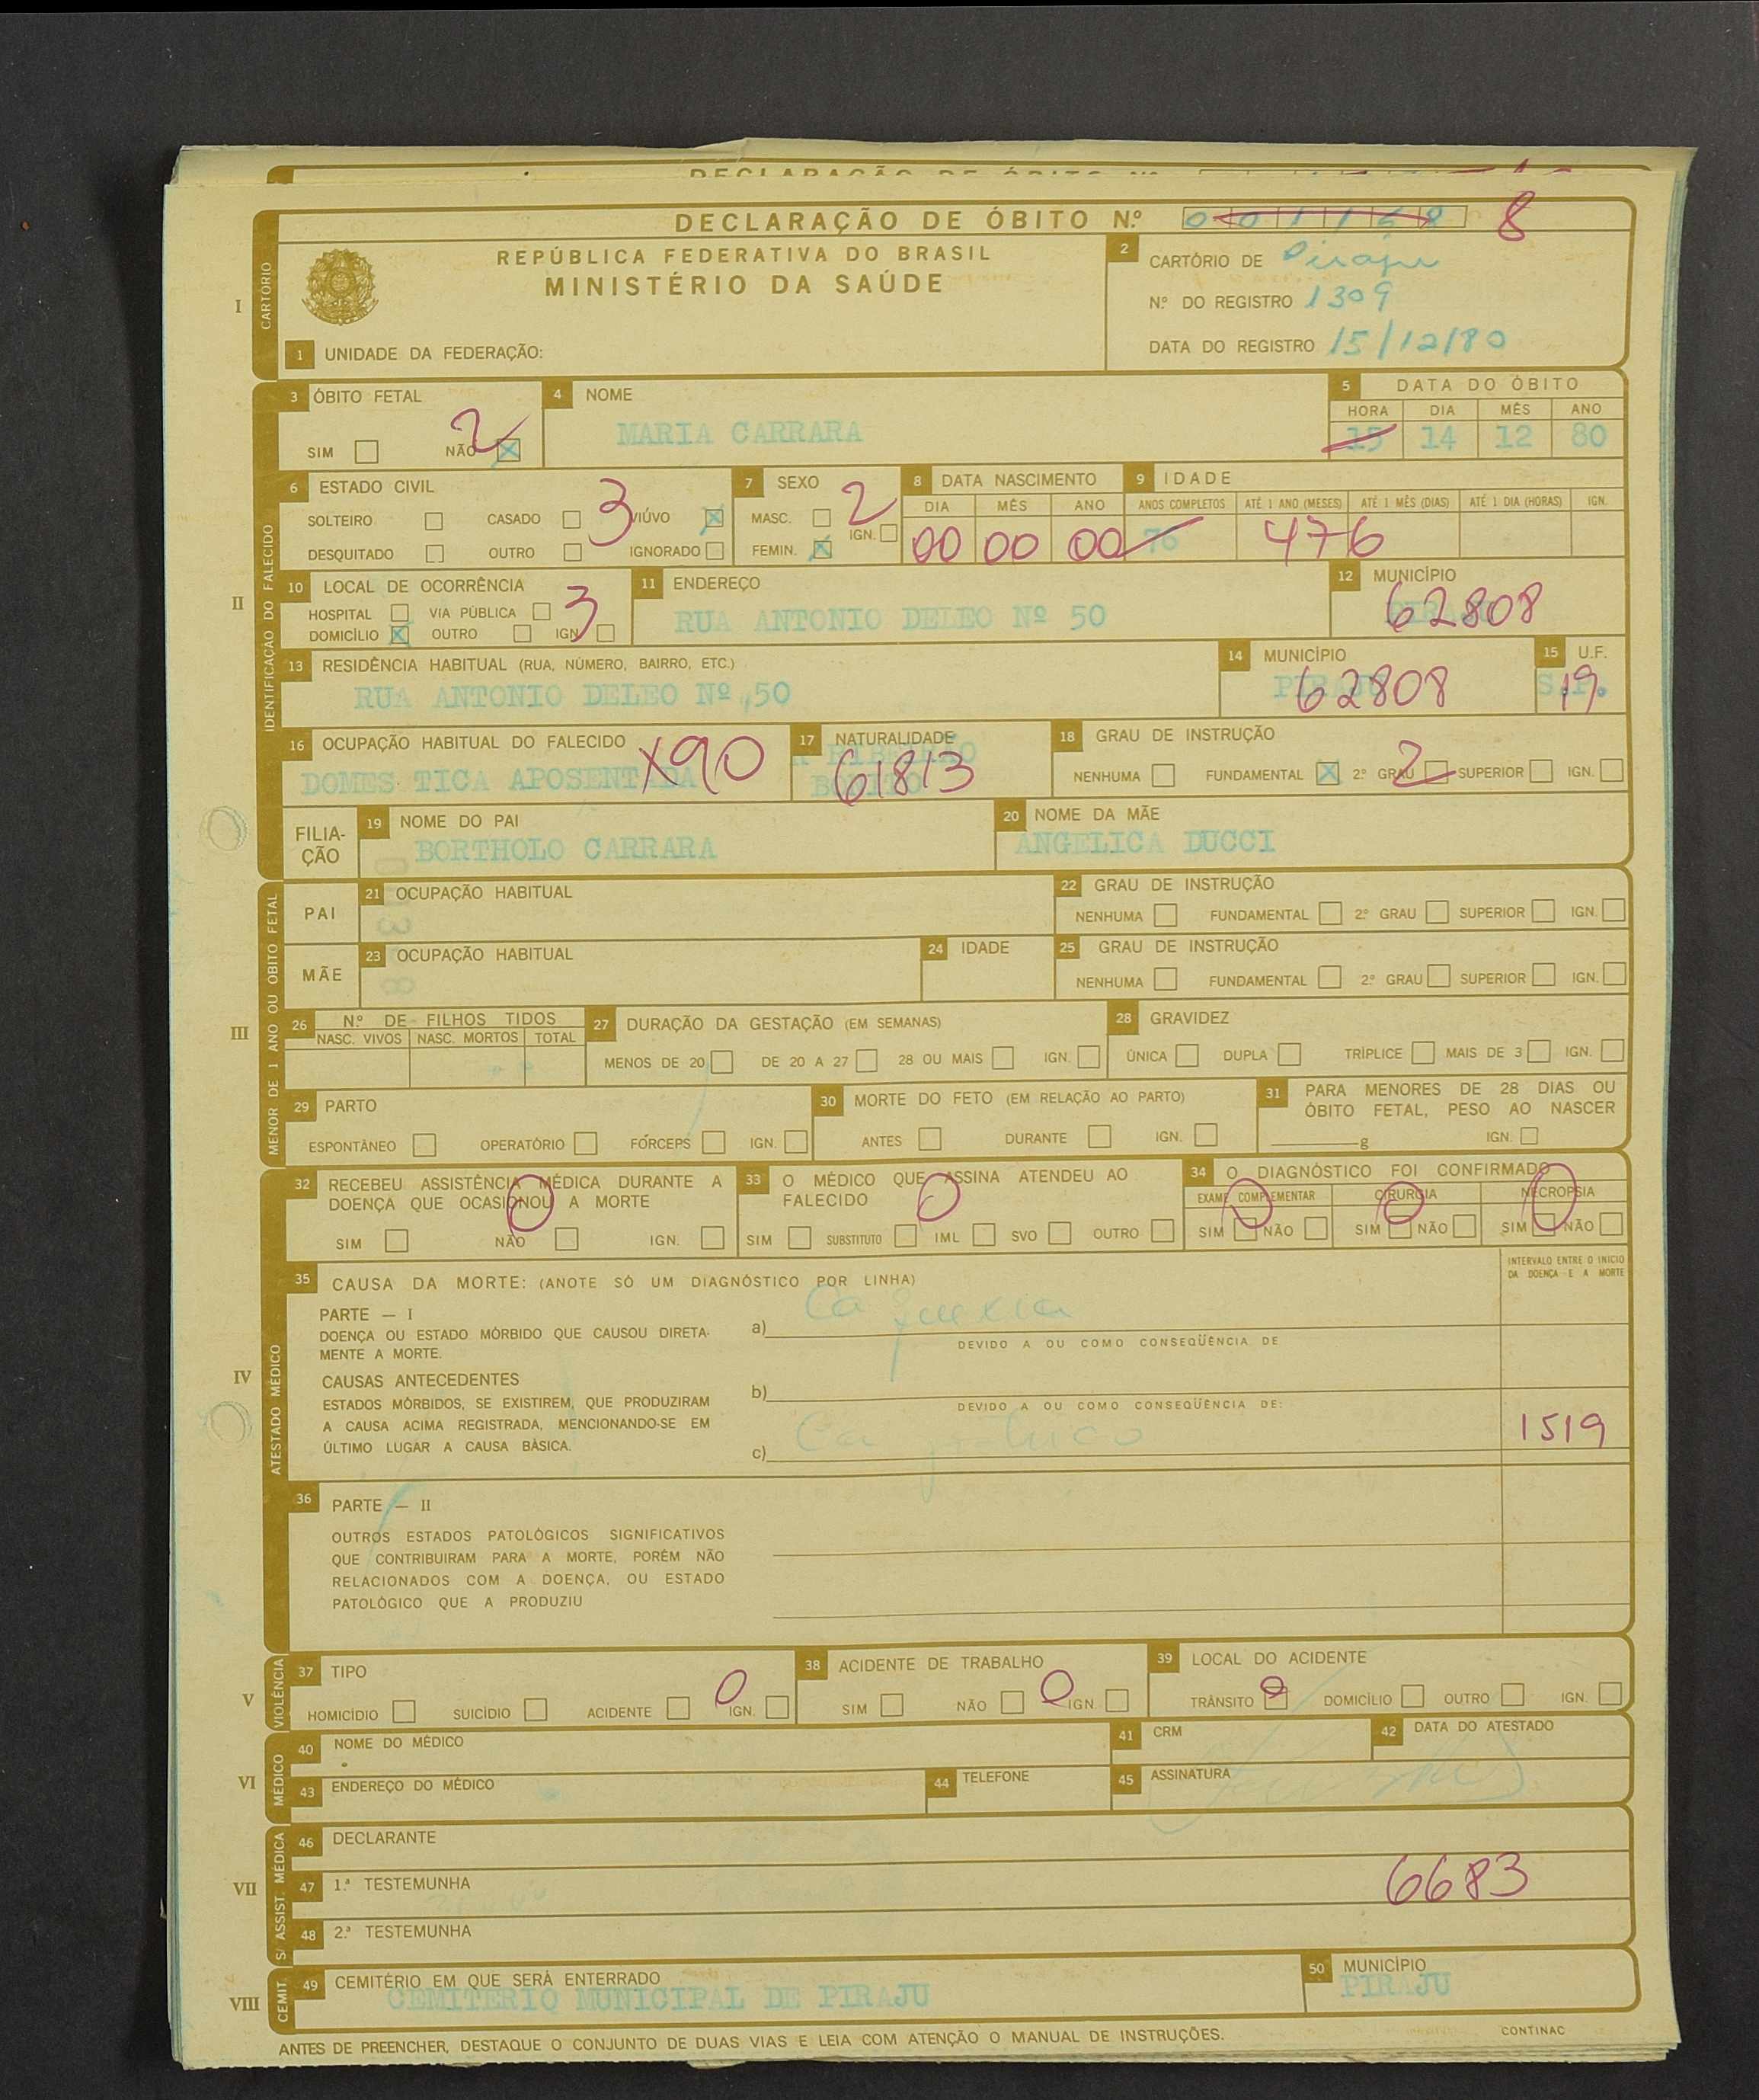 DECLARAÇÃO DE ÓBITO N.º 8
REPÚBLICA FEDERATIVA DO BRASIL
MINISTÉRIO DA SAÚDE
I
CARTÓRIO
1 UNIDADE DA FEDERAÇÃO:
2 CARTÓRIO DE Piraju
N.º DO REGISTRO 1309
DATA DO REGISTRO 15/12/80
II
IDENTIFICAÇÃO DO FALECIDO
3 ÓBITO FETAL
SIM NÃO X 2
4 NOME
MARIA CARRARA
5 DATA DO ÓBITO
HORA DIA MÊS ANO
15 14 12 80
6 ESTADO CIVIL
SOLTEIRO CASADO 3 VIÚVO X
DESQUITADO OUTRO IGNORADO
7 SEXO 2
MASC. IGN.
FEMIN. X
8 DATA NASCIMENTO
DIA MÊS ANO
00 00 00
9 IDADE
ANOS COMPLETOS ATÉ 1 ANO (MESES) ATÉ 1 MÊS (DIAS) ATÉ 1 DIA (HORAS) IGN.
76 476
10 LOCAL DE OCORRÊNCIA
HOSPITAL VIA PÚBLICA 3
DOMICÍLIO X OUTRO IGN.
11 ENDEREÇO
RUA ANTONIO DELEO Nº 50
12 MUNICÍPIO
PIRAJU 62808
13 RESIDÊNCIA HABITUAL (RUA, NÚMERO, BAIRRO, ETC.)
RUA ANTONIO DELEO Nº,50
14 MUNICÍPIO
PIRAJU 62808
15 U.F.
S.P. 19
16 OCUPAÇÃO HABITUAL DO FALECIDO X90
DOMES TICA APOSENTADA
17 NATURALIDADE
RIBEIRÃO
BONITO 61813
18 GRAU DE INSTRUÇÃO
NENHUMA FUNDAMENTAL X 2.º GRAU 2 SUPERIOR IGN.
FILIA-
ÇÃO
19 NOME DO PAI
BORTHOLO CARRARA
20 NOME DA MÃE
ANGELICA DUCCI
III
MENOR DE 1 ANO OU ÓBITO FETAL
PAI
21 OCUPAÇÃO HABITUAL
22 GRAU DE INSTRUÇÃO
NENHUMA FUNDAMENTAL 2.º GRAU SUPERIOR IGN.
MÃE
23 OCUPAÇÃO HABITUAL
24 IDADE
25 GRAU DE INSTRUÇÃO
NENHUMA FUNDAMENTAL 2.º GRAU SUPERIOR IGN.
26 N.º DE FILHOS TIDOS
NASC. VIVOS NASC. MORTOS TOTAL
27 DURAÇÃO DA GESTAÇÃO (EM SEMANAS)
MENOS DE 20 DE 20 A 27 28 OU MAIS IGN.
28 GRAVIDEZ
ÚNICA DUPLA TRÍPLICE MAIS DE 3 IGN.
29 PARTO
ESPONTÂNEO OPERATÓRIO FÓRCEPS IGN.
30 MORTE DO FETO (EM RELAÇÃO AO PARTO)
ANTES DURANTE IGN.
31 PARA MENORES DE 28 DIAS OU
ÓBITO FETAL, PESO AO NASCER
g IGN.
IV
ATESTADO MÉDICO
32 RECEBEU ASSISTÊNCIA MÉDICA DURANTE A
DOENÇA QUE OCASIONOU A MORTE 0
SIM NÃO IGN.
33 O MÉDICO QUE ASSINA ATENDEU AO
FALECIDO 0
SIM SUBSTITUTO IML SVO OUTRO
34 O DIAGNÓSTICO FOI CONFIRMADO
EXAME COMPLEMENTAR CIRURGIA NECROPSIA
0 0 0
SIM NÃO SIM NÃO SIM NÃO
35 CAUSA DA MORTE: (ANOTE SÓ UM DIAGNÓSTICO POR LINHA)
INTERVALO ENTRE O INÍCIO
DA DOENÇA E A MORTE
PARTE — I
DOENÇA OU ESTADO MÓRBIDO QUE CAUSOU DIRETA-
MENTE A MORTE.
a) Caquexia
DEVIDO A OU COMO CONSEQÜÊNCIA DE
CAUSAS ANTECEDENTES
ESTADOS MÓRBIDOS, SE EXISTIREM, QUE PRODUZIRAM
A CAUSA ACIMA REGISTRADA, MENCIONANDO-SE EM
ÚLTIMO LUGAR A CAUSA BÁSICA.
b)
DEVIDO A OU COMO CONSEQÜÊNCIA DE:
c) Ca 1519
36 PARTE — II
OUTROS ESTADOS PATOLÓGICOS SIGNIFICATIVOS
QUE CONTRIBUIRAM PARA A MORTE, PORÉM NÃO
RELACIONADOS COM A DOENÇA, OU ESTADO
PATOLÓGICO QUE A PRODUZIU
V
VIOLÊNCIA
37 TIPO
HOMICÍDIO SUICÍDIO ACIDENTE 0 IGN.
38 ACIDENTE DE TRABALHO
SIM NÃO 0 IGN.
39 LOCAL DO ACIDENTE
TRÂNSITO 0 DOMICÍLIO OUTRO IGN.
VI
MÉDICO
40 NOME DO MÉDICO
41 CRM
42 DATA DO ATESTADO
43 ENDEREÇO DO MÉDICO
44 TELEFONE
45 ASSINATURA
VII
S/ ASSIST. MÉDICA
46 DECLARANTE
47 1.ª TESTEMUNHA
6683
48 2.ª TESTEMUNHA
VIII
CEMIT.
49 CEMITÉRIO EM QUE SERÁ ENTERRADO
CEMITERIO MUNICIPAL DE PIRAJU
50 MUNICÍPIO
PIRAJU
ANTES DE PREENCHER, DESTAQUE O CONJUNTO DE DUAS VIAS E LEIA COM ATENÇÃO O MANUAL DE INSTRUÇÕES.
CONTINAC